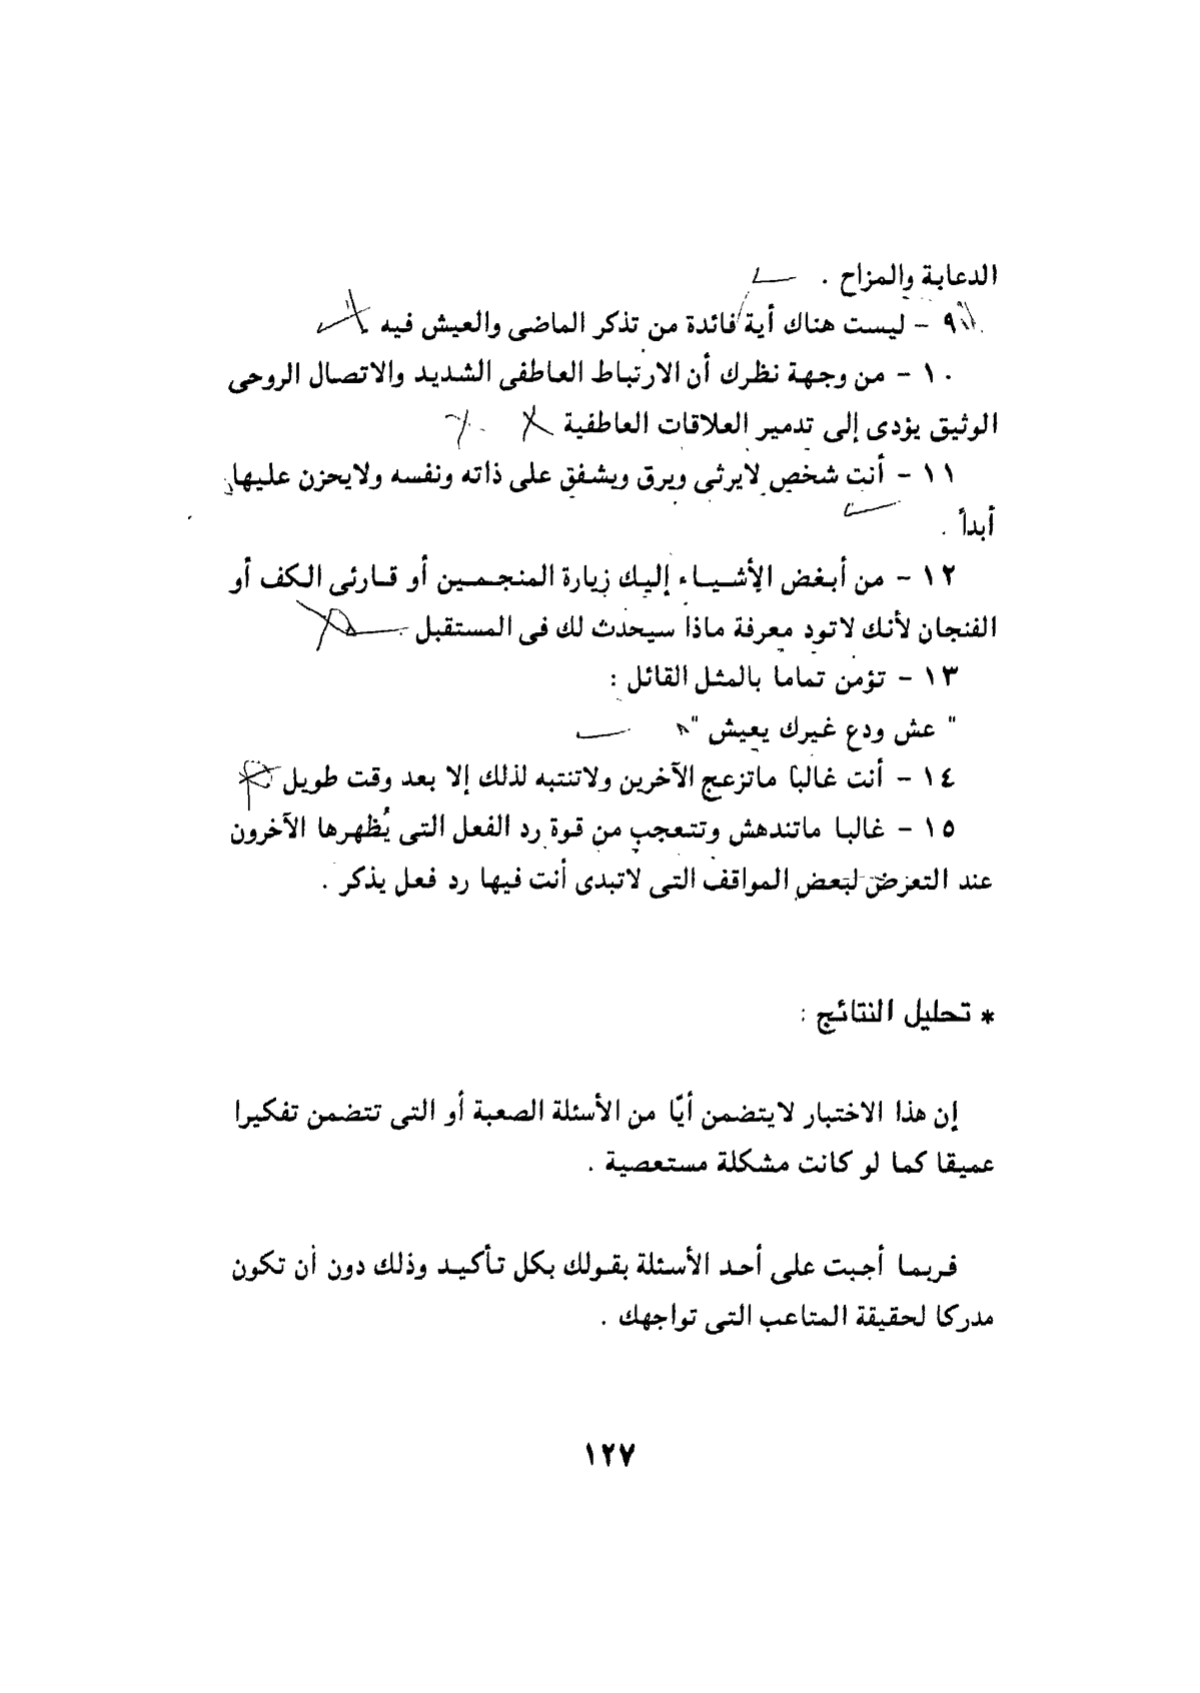 الدعابة والمزاح .
٩ - ليست هناك أية فائدة من تذكر الماضى والعيش فيه .
١٠ - من وجهة نظرك أن الارتباط العاطفى الشديد والاتصال الروحى
الوثيق يؤدى إلى تدمير العلاقات العاطفية
١١ - أنت شخص لايرثى ويرق ويشفق على ذاته ونفسه ولايحزن عليها
أبداً .
١٢ - من أبغض الأشياء إليك زيارة المنجمين أو قارئى الكف أو
الفنجان لأنك لاتود معرفة ماذا سيحدث لك فى المستقبل .
١٣ - تؤمن تماما بالمثل القائل :
" عش ودع غيرك يعيش "
١٤ - أنت غالبا ماتزعج الآخرين ولاتنتبه لذلك إلا بعد وقت طويل
١٥ - غالبا ماتندهش وتتعجب من قوة رد الفعل التى يُظهرها الآخرون
عند التعرض لبعض المواقف التى لاتبدى أنت فيها رد فعل يذكر .
* تحليل النتائج :
إن هذا الاختبار لايتضمن أيًا من الأسئلة الصعبة أو التى تتضمن تفكيرا
عميقا كما لو كانت مشكلة مستعصية .
فربما أجبت على أحد الأسئلة بقولك بكل تأكيد وذلك دون أن تكون
مدركا لحقيقة المتاعب التى تواجهك .
١٢٧